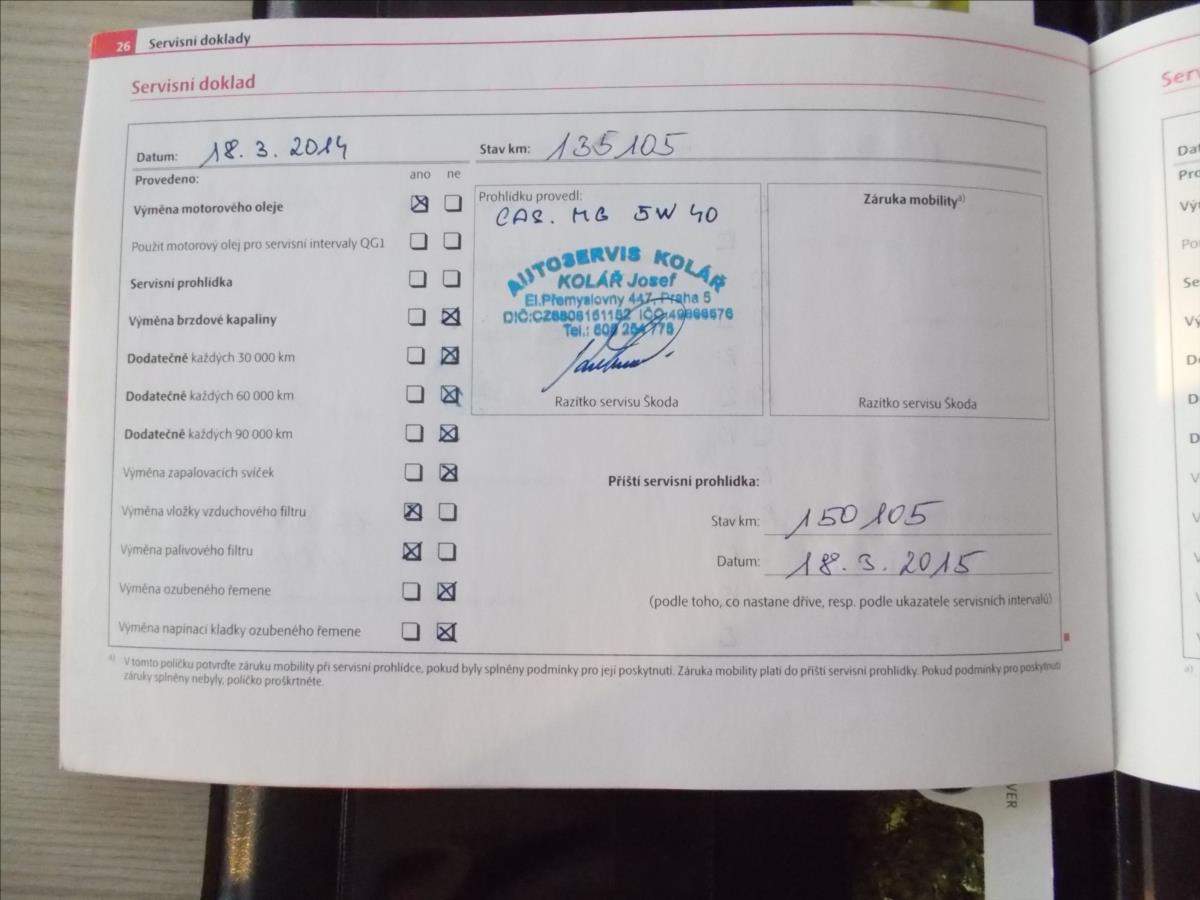 26 Servisní doklady
Servisní doklad
Datum: 18. 3. 2014
Stav km: 135105
Provedeno: ano ne
Výměna motorového oleje
Použit motorový olej pro servisní intervaly QG1
Servisní prohlídka
Výměna brzdové kapaliny
Dodatečně každých 30 000 km
Dodatečně každých 60 000 km
Dodatečně každých 90 000 km
Výměna zapalovacích svíček
Výměna vložky vzduchového filtru
Výměna palivového filtru
Výměna ozubeného řemene
Výměna napínací kladky ozubeného řemene
Prohlídku provedl:
CAS. MG 5W 40
AUTOSERVIS KOLÁŘ
KOLÁŘ Josef
El.Přemyslovny 447, Praha 5
DIČ:CZ6808161152 IČO:
Tel.: 776
Razítko servisu Škoda
Záruka mobility a)
Razítko servisu Škoda
Příští servisní prohlídka:
Stav km: 150105
Datum: 18. 3. 2015
(podle toho, co nastane dříve, resp. podle ukazatele servisních intervalů)
a) V tomto políčku potvrďte záruku mobility při servisní prohlídce, pokud byly splněny podmínky pro její poskytnutí. Záruka mobility platí do příští servisní prohlídky. Pokud podmínky pro poskytnutí
záruky splněny nebyly, políčko proškrtněte.
VER